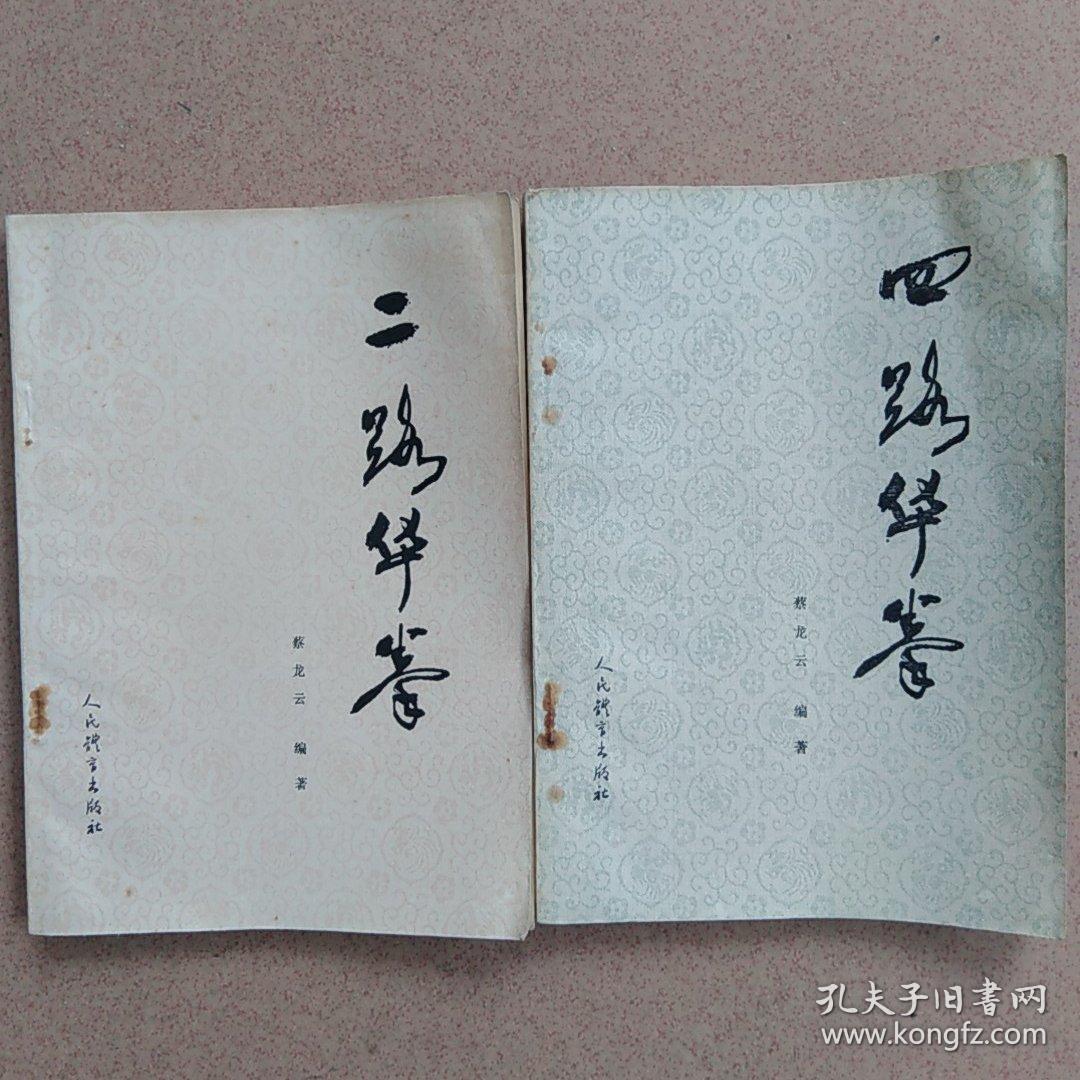 二路华拳
蔡龙云 编著
人民體育出版社
四路华拳
蔡龙云 编著
人民體育出版社
孔夫子旧書网
www.kongfz.com